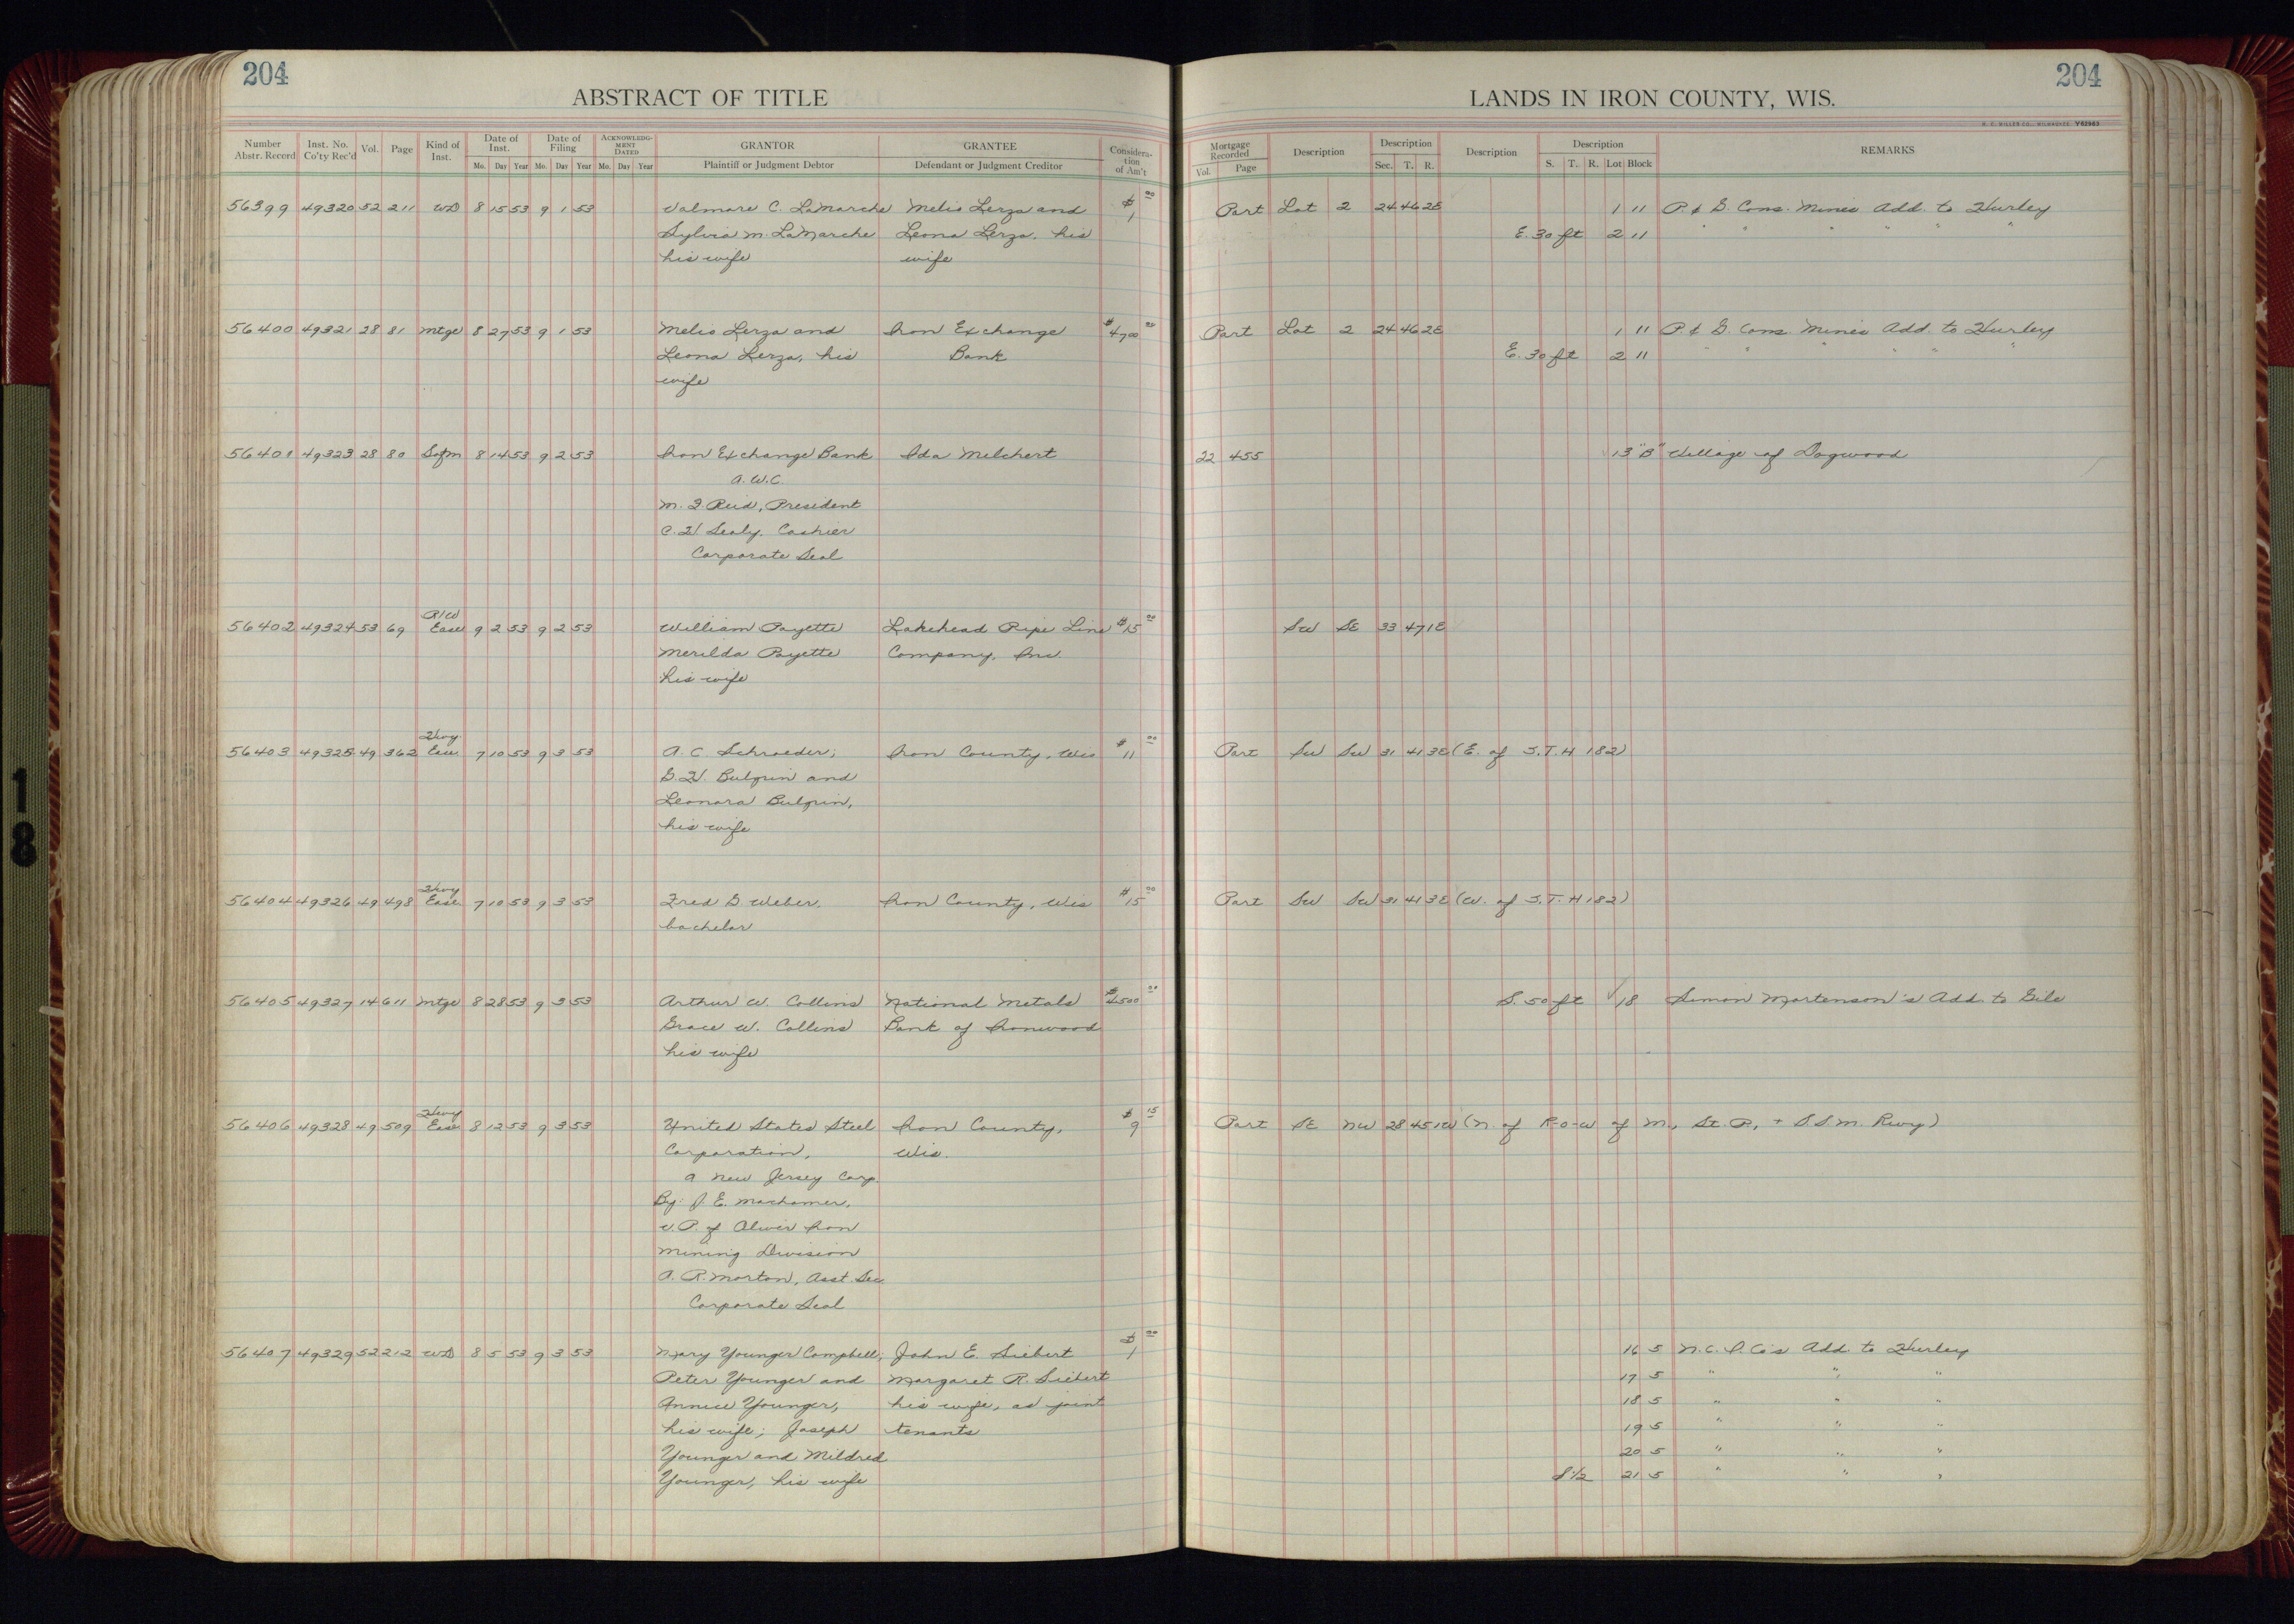 204
ABSTRACT OF TITLE
Number Abstr. Record Inst. No. Co'ty Rec'd Vol. Page Kind of Inst. Date of Inst. Date of Filing ACKNOWLEDGMENT DATED GRANTOR GRANTEE Consideration of Am't
Mo. Day Year Mo. Day Year Mo. Day Year Plaintiff or Judgment Debtor Defendant or Judgment Creditor
56399 49320 52 211 WD 8 15 53 9 1 53 Valmare C. LaMarche Melio Lerza and $1 00
Sylvia M. LaMarche Leona Lerza, his
his wife wife
56400 49321 28 81 Mtge 8 27 53 9 1 53 Melio Lerza and Iron Exchange $4700 00
Leona Lerza, his Bank
wife
56401 49323 28 80 Sofm 8 14 53 9 2 53 Iron Exchange Bank Ida Melchert
A.W.C.
M. J. Reid, President
C. H. Sealy, Cashier
Corporate Seal
R/W
56402 49324 53 69 Ease 9 2 53 9 2 53 William Payette Lakehead Pipe Line $15 00
Merilda Payette Company, Inc.
his wife
Hwy
56403 49325 49 362 Ease 7 10 53 9 3 53 A. C. Schroeder; Iron County, Wis $11 00
G. H. Bulgrin and
Leonora Bulgrin,
his wife
Hwy
56404 49326 49 498 Ease 7 10 53 9 3 53 Fred G Weber, Iron County, Wis $15 00
bachelor
56405 49327 14 611 Mtge 8 28 53 9 3 53 Arthur W. Collins National Metals $4500 00
Grace W. Collins Bank of Ironwood
his wife
Hwy
56406 49328 49 509 Ease 8 12 53 9 3 53 United States Steel Iron County, $9 15
Corporation, Wis.
a New Jersey Corp.
By: J. E. Machamer,
V. P. of Oliver Iron
Mining Division
A. R. Morton, Asst. Sec.
Corporate Seal
56407 49329 52 212 WD 8 5 53 9 3 53 Mary Younger Campbell; John E. Siebert $1 00
Peter Younger and Margaret R. Siebert
Annice Younger, his wife, as joint
his wife; Joseph tenants
Younger and Mildred
Younger, his wife
204
LANDS IN IRON COUNTY, WIS.
H. C. MILLER CO., MILWAUKEE Y62963
Mortgage Recorded Description Description Description Description REMARKS
Vol. Page Sec. T. R. S. T. R. Lot Block
Part Lot 2 24 46 2E 1 11 P. & G. Cons. Mines Add. to Hurley
E. 30 ft 2 11 " " " " " "
Part Lot 2 24 46 2E 1 11 P. & G. Cons. Mines Add. to Hurley
E. 30 ft 2 11 " " " " " "
22 455 13 "B" Village of Dogwood
SW SE 33 47 1E
Part SW SW 31 41 3E (E. of S.T.H 182)
Part SW SW 31 41 3E (W. of S.T.H 182)
S. 50 ft 18 Simon Mortenson's Add. to Gile
Part SE NW 28 45 1W (N. of R-o-W of M., St. P., + S S M. Rwy)
16 5 N.C.I. Co's Add. to Hurley
17 5 " " "
18 5 " " "
19 5 " " "
20 5 " " "
S 1/2 21 5 " " "
18